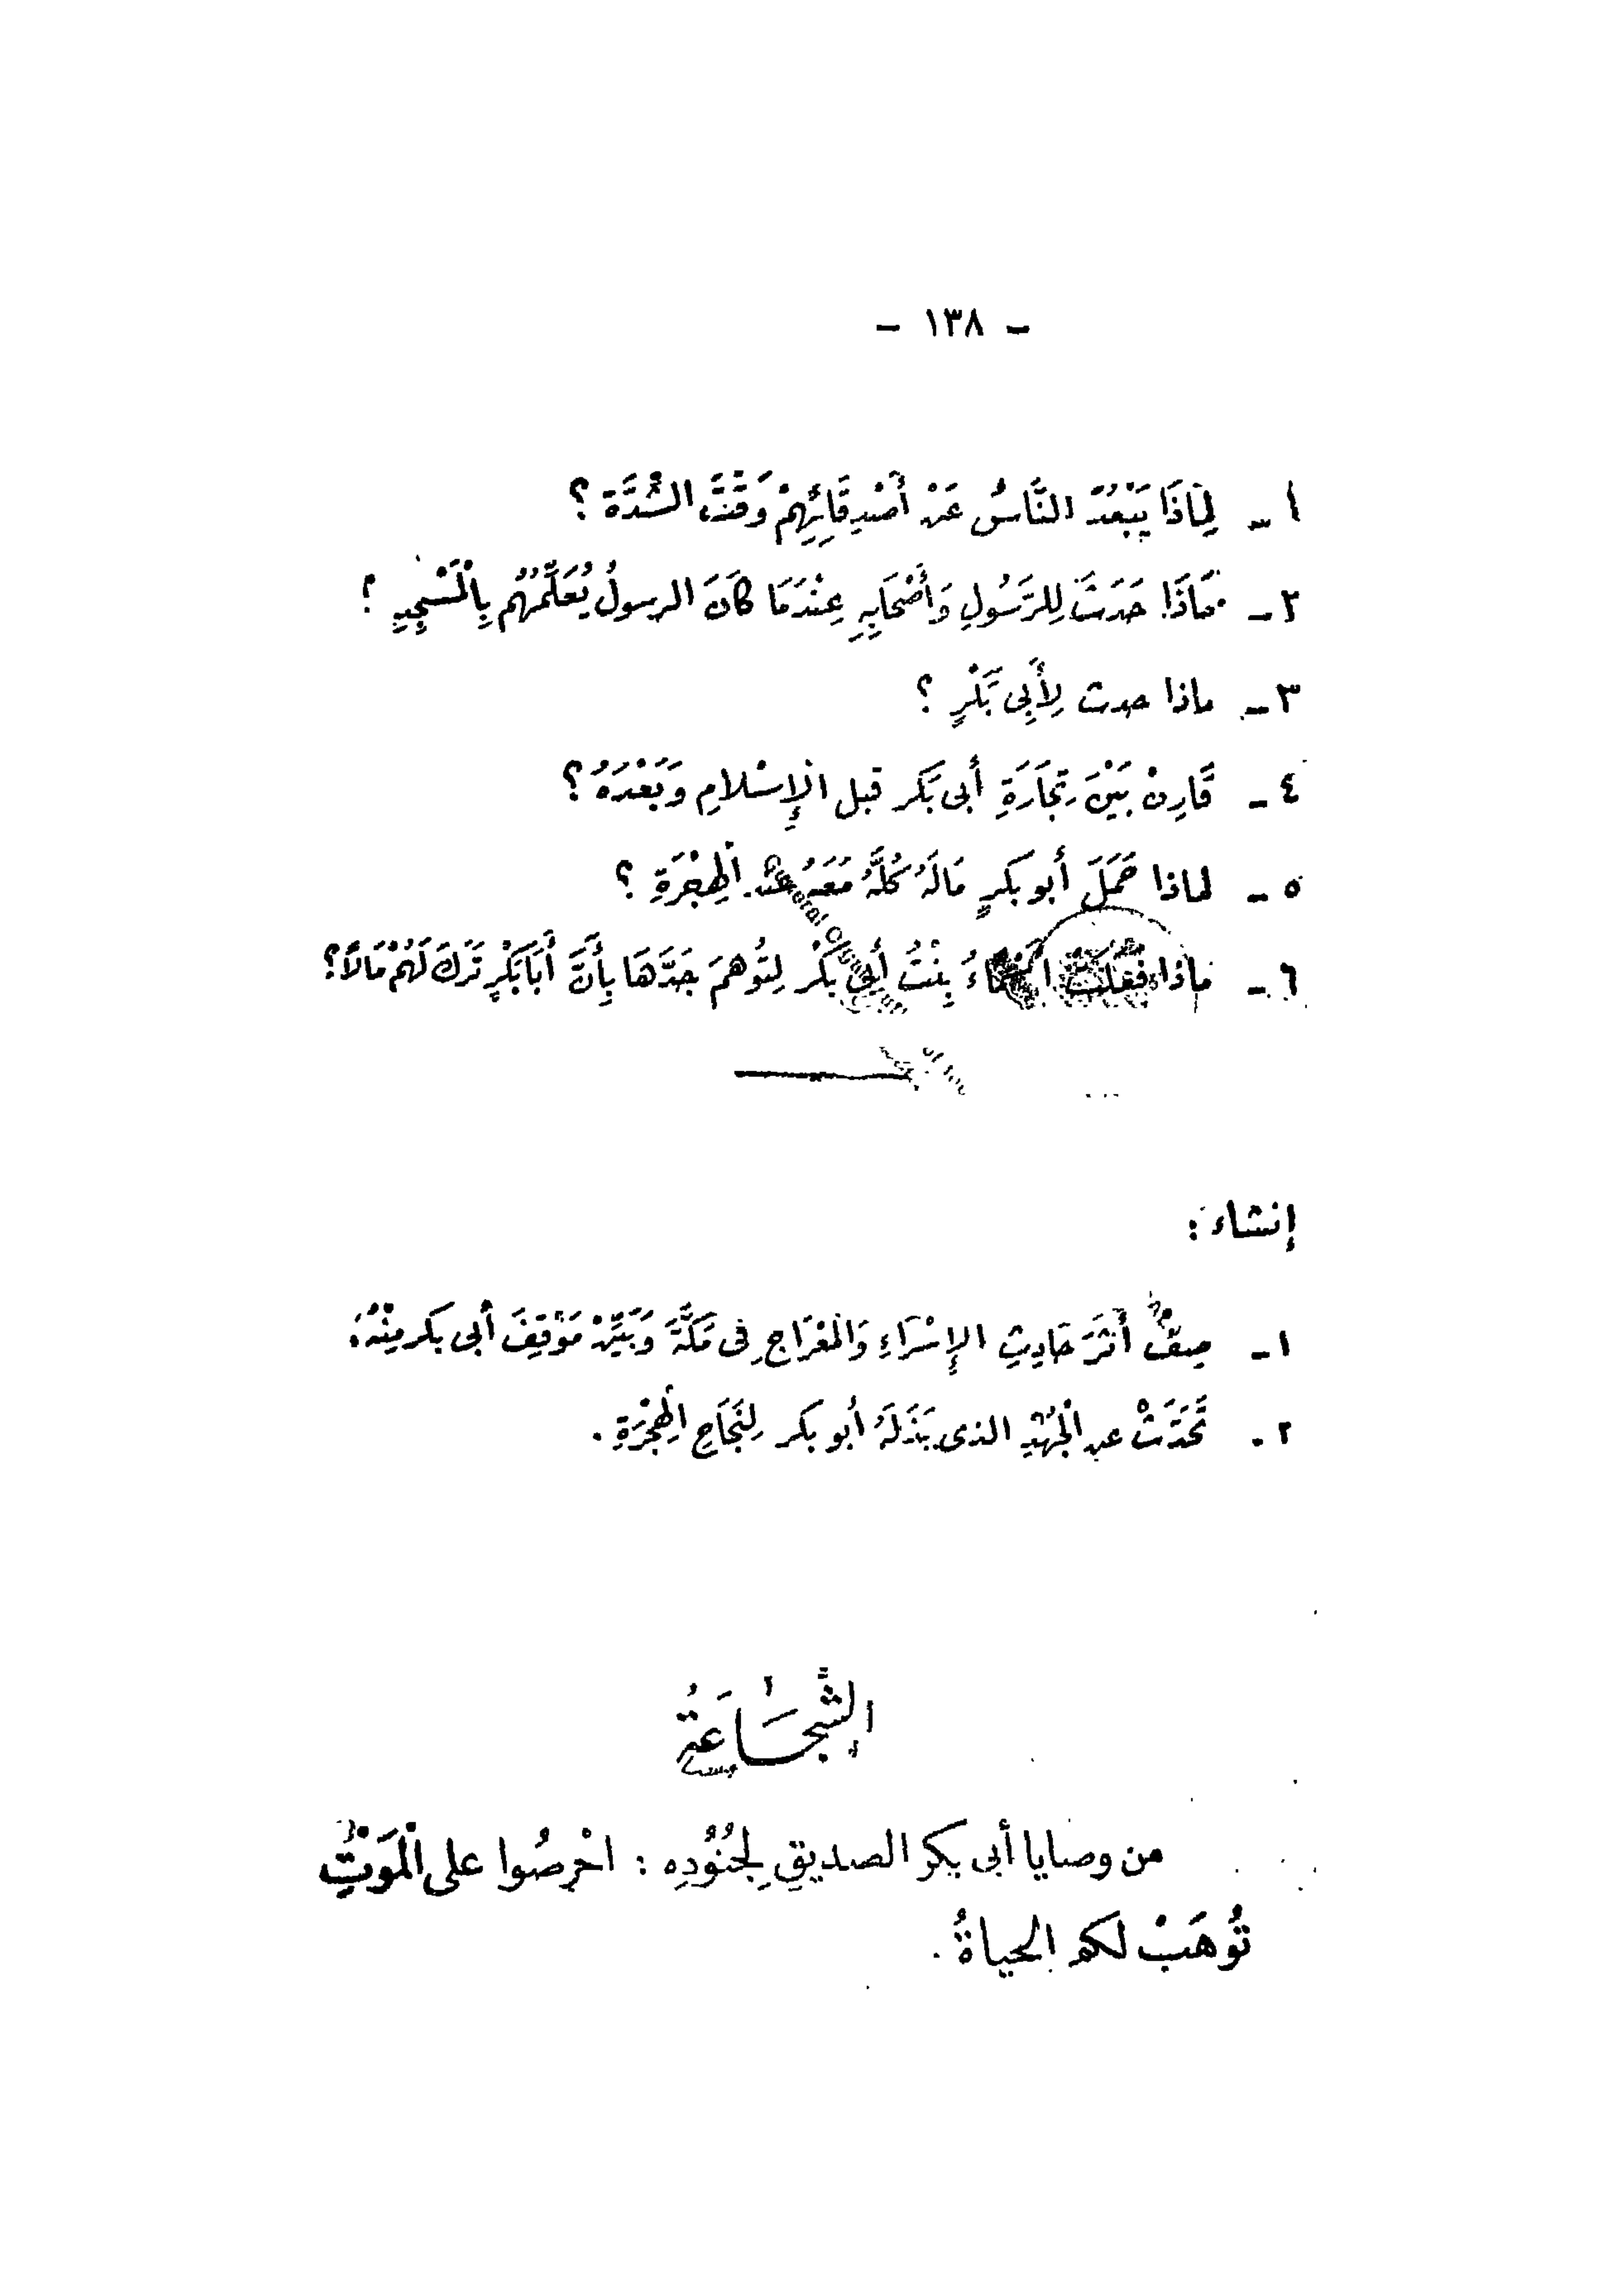 - ١٣٨ -
١ - لِمَاذَا يَبْعُدُ النَّاسُ عَنْ أَصْدِقَائِهِمْ وَقْتَ الشِّدَّةِ ؟
٢ - مَاذَا حَدَثَ لِلرَّسُولِ وَأَصْحَابِهِ عِنْدَمَا كَانَ الرسولُ يُعَلِّمُهُم بِالْمَسْجِدِ ؟
٣ - ماذا حدث لِأَبِى بَكْرٍ ؟
٤ - قَارِنْ بَيْنَ تِجَارَةِ أبى بَكر قبل الْإِسْلامِ وَبَعْدَهُ ؟
٥ - لماذا حَمَلَ أبو بكرٍ مَالَهُ كُلَّهُ مَعَهُ عند الْهِجْرَةِ ؟
٦ - ماذا فَعَلَتْ أَسْمَاءُ بِنْتُ أَبِى بَكْر لِتُوهِمَ جَدَّهَا بِأَنَّ أَبَا بَكْرٍ تَرَكَ لَهُمْ مَالاً ؟
إنشاء :
١ - صِفْ أَثَرَ حَادِثِ الإِسْرَاءِ وَالمعْرَاجِ فِى مَكَّةَ وَبَيِّنْ مَوْقِفَ أَبى بكر مِنْهُ .
٢ - تَحَدَّثْ عن الْجُهْدِ الذى بَذَلَهُ أبو بكر لِنَجَاحِ الْهِجْرَةِ .
الشَّجَاعَةُ
من وصايا أبى بكر الصديقِ لِجُنُودِهِ : احْرِصُوا على الْمَوْتِ
تُوهَبْ لكم الحياةُ .